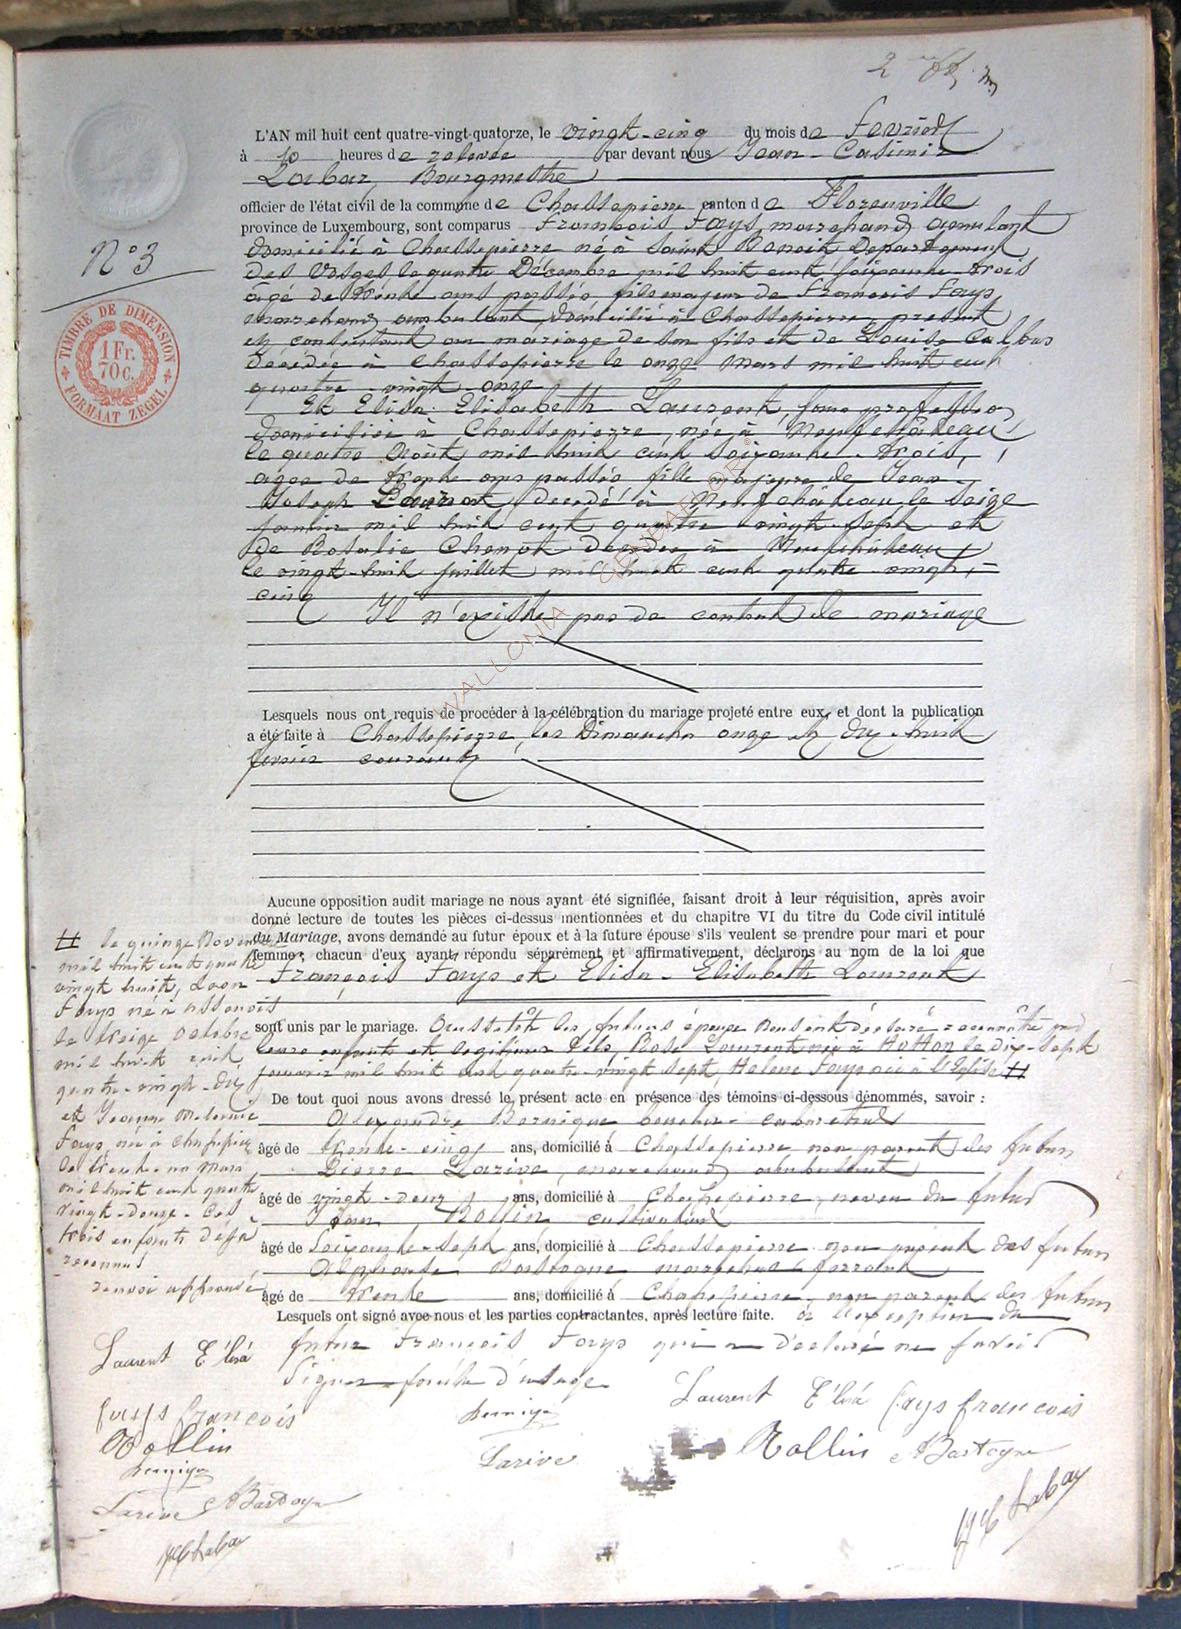 N° 3
TIMBRE DE DIMENSION
1 Fr.
70 C.
FORMAAT ZEGEL
L'AN mil huit cent quatre-vingt-quatorze, le vingt-cinq du mois de février
à 10 heures de relevée par devant nous Jean-Casimir
Labar, Bourgmestre
officier de l'état civil de la commune de Chassepierre canton de Florenville
province de Luxembourg, sont comparus François Fays, marchand ambulant
domicilié à Chassepierre né à Saint Benoit Departement
des Vosges le quatre Décembre mil huit cent soixante-trois
âgé de trente ans passés, fils majeur de François Fays
marchand ambulant, domicilié à Chassepierre, présent
et consentant au mariage de son fils et de Louise
décédée à Chassepierre le onze Mars mil huit cent
quatre-vingt-onze
Et Elisa-Elisabeth Laurent, sans profession
domiciliée à Chassepierre, née à Neufchâteau
le quatre Août mil huit cent soixante-trois,
âgée de trente ans passés fille majeure de Jean
Joseph Laurent, decédé à Neufchâteau le seize
janvier mil huit cent quatre-vingt-sept et
de Rosalie Chenot decedée à Neufchâteau
le vingt-huit juillet mil huit cent quatre-vingt-
cinq
Il n'existe pas de contrat de mariage
WALLONIA GENBAELOR
Lesquels nous ont requis de procéder à la célébration du mariage projeté entre eux, et dont la publication
a été faite à Chassepierre, les Dimanches onze et dix-huit
février courant
Aucune opposition audit mariage ne nous ayant été signifiée, faisant droit à leur réquisition, après avoir
donné lecture de toutes les pièces ci-dessus mentionnées et du chapitre VI du titre du Code civil intitulé
du Mariage, avons demandé au futur époux et à la future épouse s'ils veulent se prendre pour mari et pour
femme; chacun d'eux ayant répondu séparément et affirmativement, déclarons au nom de la loi que
François Fays et Elisa-Elisabeth Laurent
sont unis par le mariage. Aussitôt les futurs époux nous ont déclaré reconnaître pour
leurs enfants et legitimer Rose Laurent née à Hotton le dix-sept
janvier mil huit cent quatre-vingt sept, Helene Fays née à l'Eglise #
# le quinze Novembre
mil huit cent quatre
vingt huit, Leon
Fays né à Assenois
le treize octobre
mil huit cent
quatre-vingt-dix
et Jeanne
Fays née à Chassepierre
le trente-un Mars
mil huit cent quatre
vingt-douze. Ces
trois enfants déjà
reconnus
renvoi approuvé
De tout quoi nous avons dressé le présent acte en présence des témoins ci-dessous dénommés, savoir :
Alexandre boucher-cabaretier
âgé de trente-cinq ans, domicilié à Chassepierre non parent des futurs
Pierre Larive, marchand ambulant
âgé de vingt-deux ans, domicilié à Chassepierre, neveu du futur
Jean Rollin cultivateur
âgé de soixante-sept ans, domicilié à Chassepierre non parent des futurs
Alphonse Bastogne marechal-ferrant
âgé de trente ans, domicilié à Chassepierre non parent des futurs
Lesquels ont signé avec nous et les parties contractantes, après lecture faite. à l'exception du
futur François Fays qui a déclaré ne savoir
signer faute d'usage
Laurent Elisa
Laurent Elisa fays francois
fays francois
Rollin
Larive
Rollin
A Bastogne
Larive A Bastogne
JC Labar
JC Labar